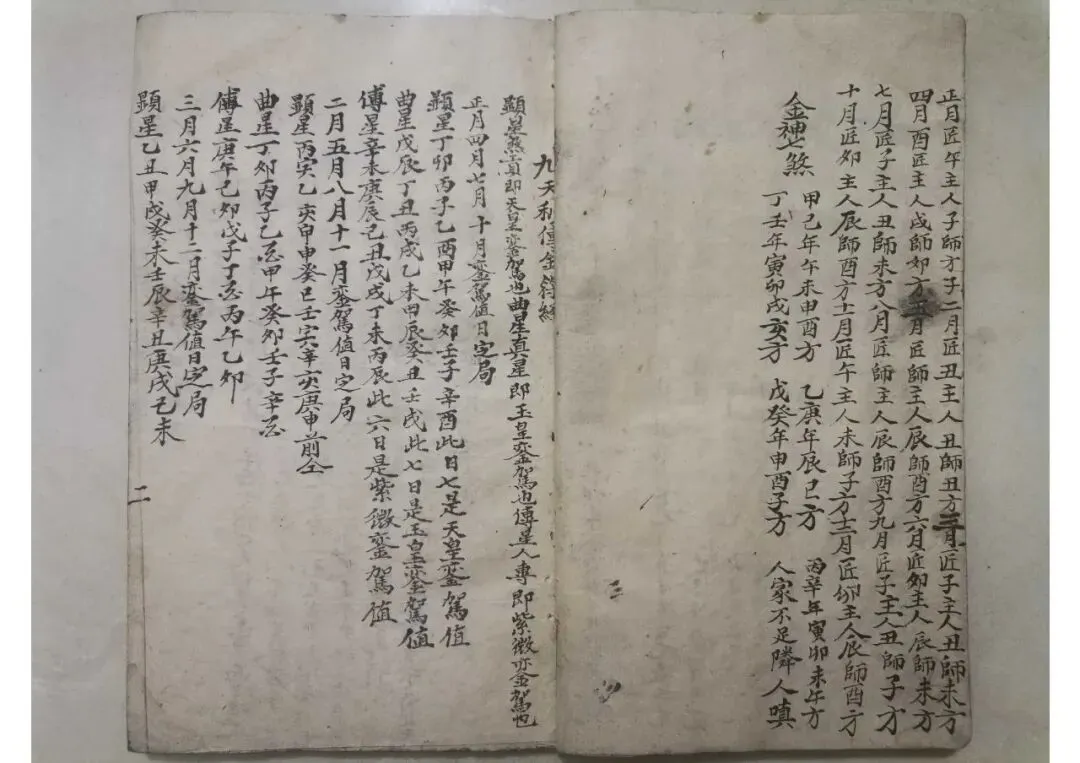 正月匠午主人子師方子二月匠丑主人丑師丑方三月匠子主人丑師未方
四月酉匠主人戍師夘方五月匠師主人辰師酉方六月匠夘主人辰師未方
七月匠子主人丑師未方八月匠師主人辰師酉方九月匠子主人丑師子方
十月匠夘主人辰師酉方十一月匠午主人未師子方十二月匠夘主人辰師酉方
金神七煞
甲己年午未申酉方 乙庚年辰巳方 丙辛年寅夘未午方
丁壬年寅卯戍亥方 戊癸年申酉子方 人家不足隣人嗔
三
九天
顕星煞貢即天皇鑾駕也曲星真星即玉皇鑾駕也傳星人專即紫微鑾駕也
正月四月七月十月鑾駕值日定局
顕星丁夘丙子乙酉甲午癸夘壬子辛酉此日七是天皇鑾駕值
曲星戊辰丁丑丙戍乙未甲辰癸丑壬戍此七日是玉皇鑾駕值
傳星辛未庚辰己丑戊戍丁未丙辰此六日是紫微鑾駕值
二月五月八月十一月鑾駕值日定局
顕星丙寅乙亥甲申癸巳壬寅辛亥庚申前仝
曲星丁夘丙子乙酉甲午癸夘壬子辛酉
傳星庚午己夘戊子丁酉丙午乙夘
三月六月九月十二月鑾駕值日定局
顕星乙丑甲戍癸未壬辰辛丑庚戍己未
二